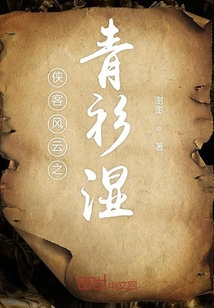 侠客风云之
青衫湿
谢澎。著
中文网